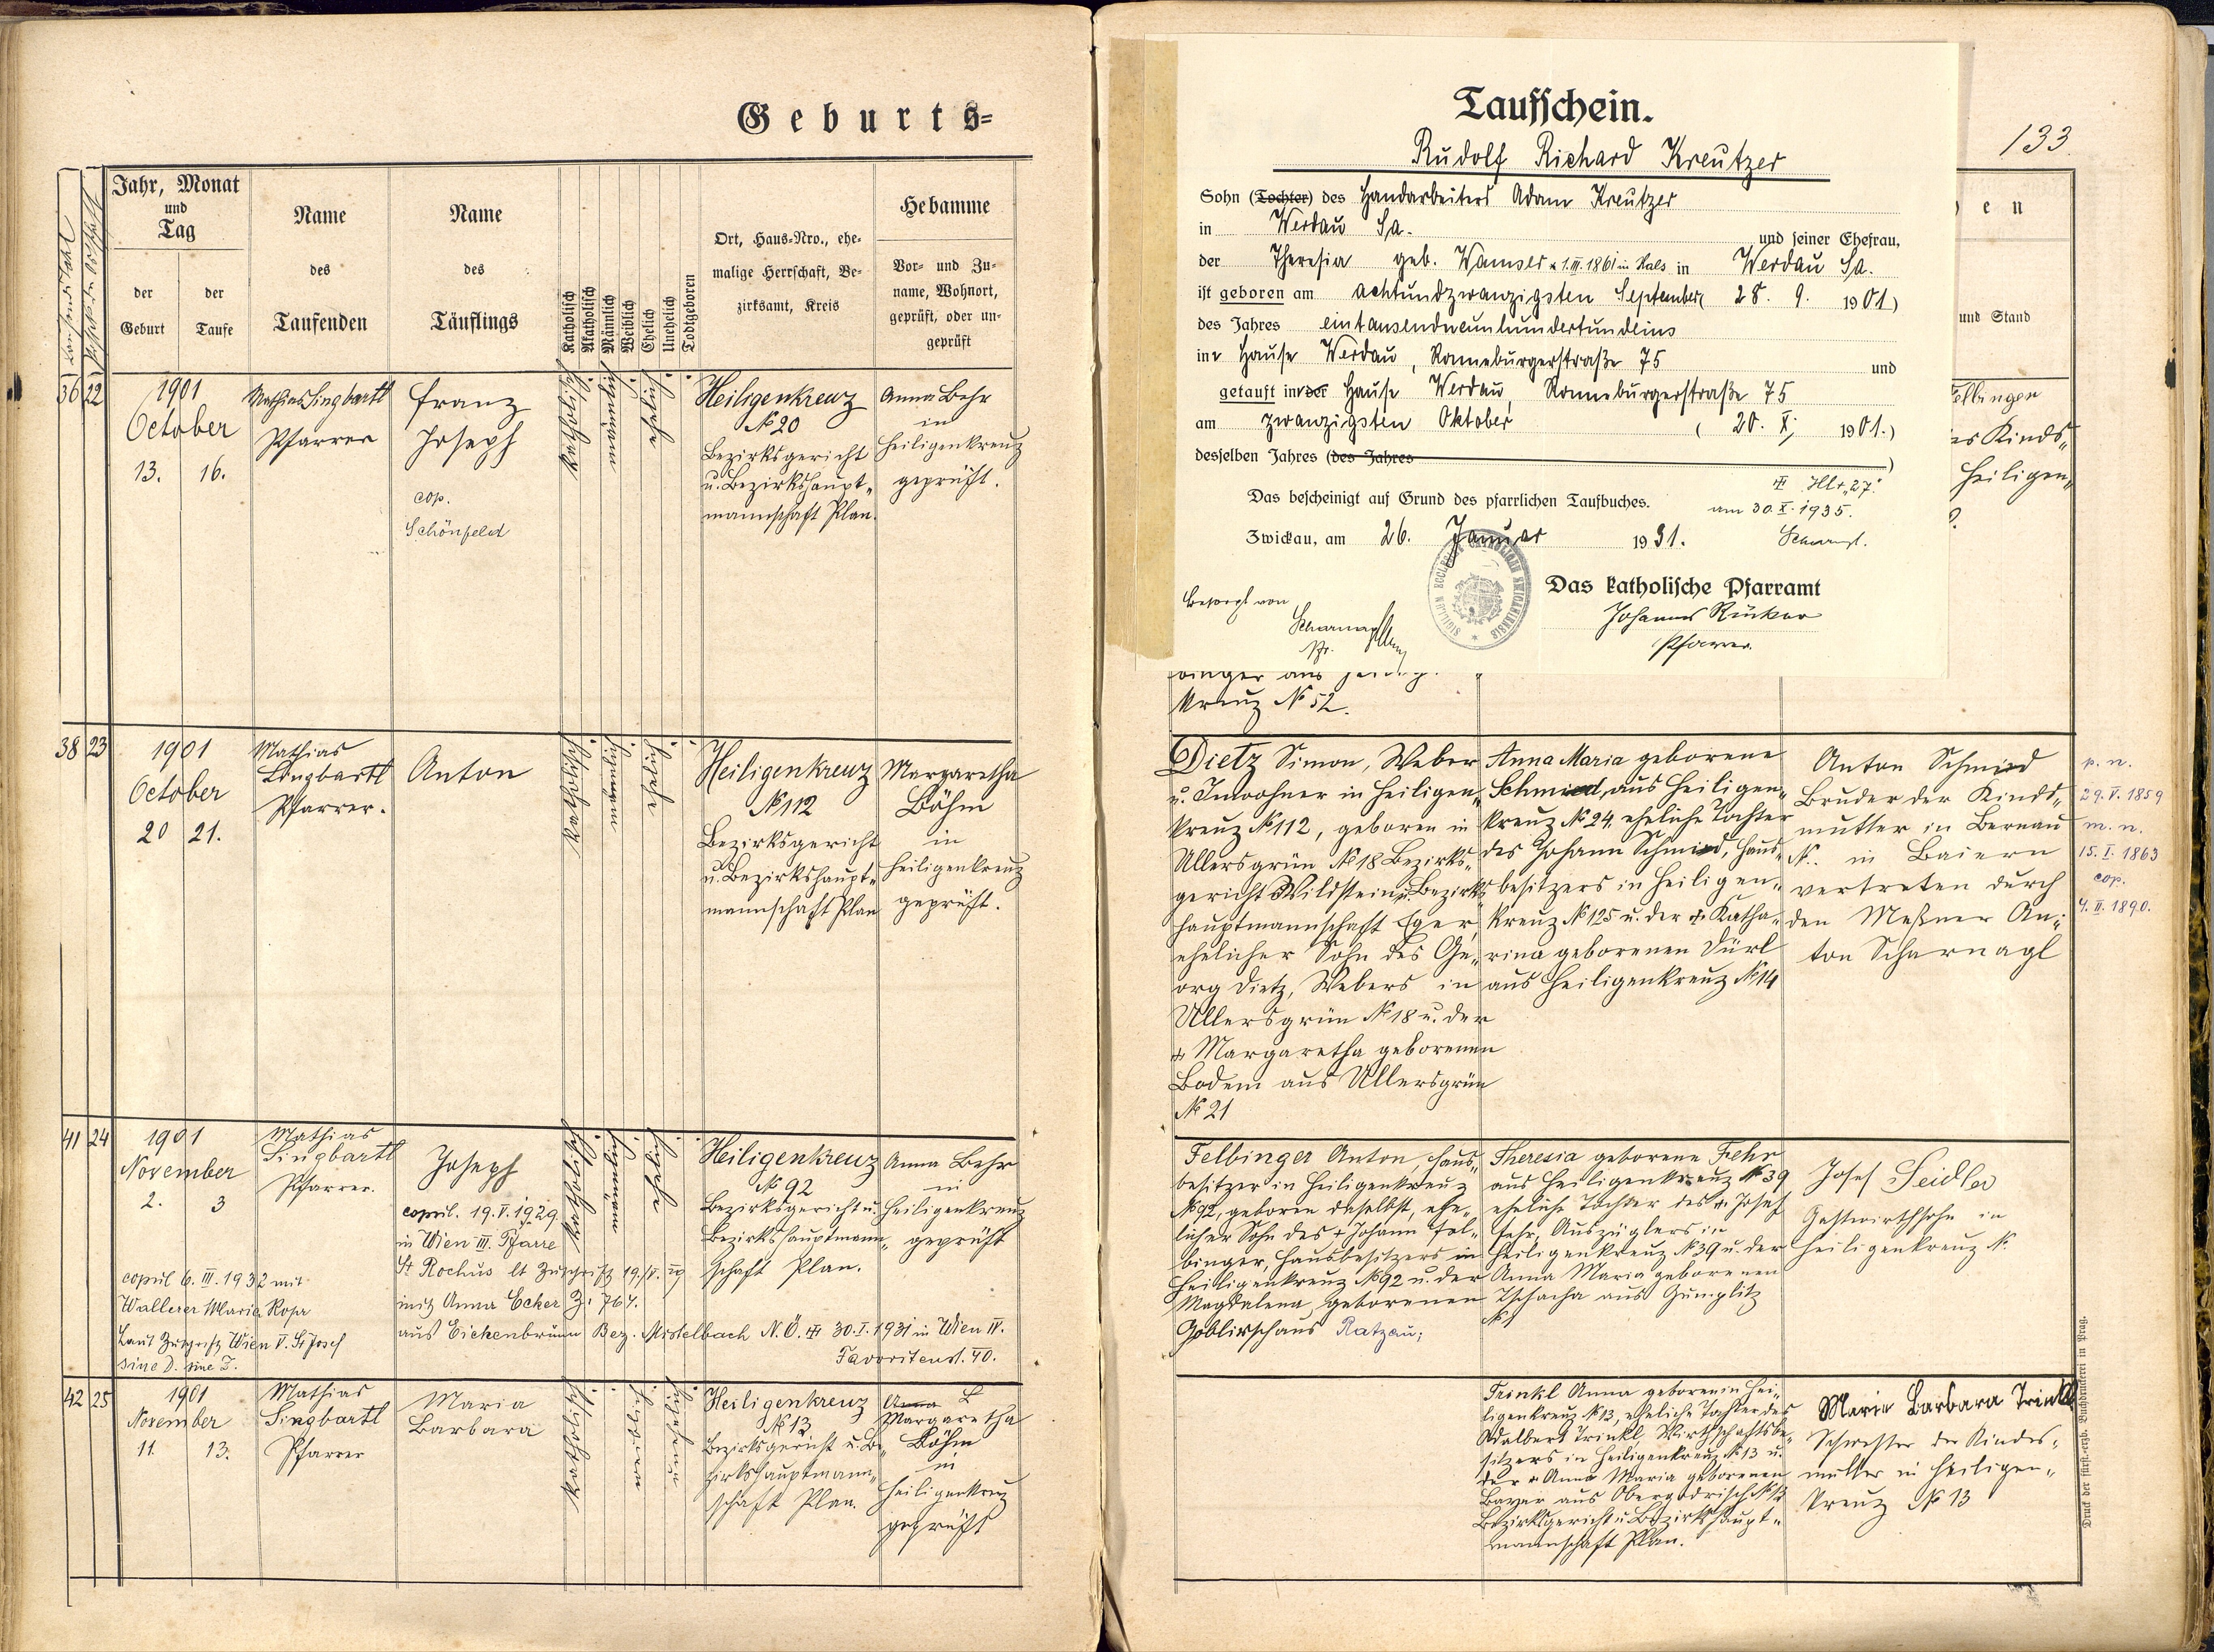 Geburts-
Jahr, Monat
und
Tag
der
Geburt
der
Taufe
Name
des
Taufenden
Name
des
Täuflings
Katholisch
Akatholisch
Männlich
Weiblich
Ehelich
Unehelich
Todtgeboren
Ort, Haus-Nro., ehe-
malige Herrschaft, Be-
zirksamt, Kreis
Hebamme
Vor- und Zu-
name, Wohnort,
geprüft, oder un-
geprüft
36 22
1901
October
13. 16.
Mathias Singbartl
Pfarrer
Franz
Joseph
cop.
Schönfeld
katholisch
männ
ehelich
Heiligenkreuz
№ 20
Bezirksgericht
u. Bezirkshaupt-
mannschaft Plan.
Anna Behr
in
Heiligenkreuz
geprüft.
38 23
1901
October
20 21.
Mathias
Singbartl
Pfarrer.
Anton
katholisch
ehelich
Heiligenkreuz
№ 112
Bezirksgericht
u. Bezirkshaupt-
mannschaft Plan
Margaretha
Böhm
in
Heiligenkreuz
geprüft.
41 24
1901
November
2. 3
Mathias
Singbartl
Pfarrer.
Joseph
copul. 19.V.1929
in Wien III. Pfarre
St Rochus lt Zuschrift 19./V. 29
mit Anna Ecker Z. 767.
aus Eichenbrunn Bez. Mistelbach N.Ö. 30.I.1931 in Wien IV.
Favoritenst. 40.
copul 6.III.1932 mit
Wallerer Maria Rosa
Laut Zuschrift Wien V. St Josef
sine D. sine Z.
katholisch
Heiligenkreuz
№ 92
Bezirksgericht u.
Bezirkshauptmann-
schaft Plan.
Anna Behr
in
Heiligenkreuz
geprüft
42 25
1901
November
11. 13.
Mathias
Singbartl
Pfarrer
Maria
Barbara
katholisch
Heiligenkreuz
№ 13
Bezirksgericht u. Be-
zirkshauptmann-
schaft Plan.
Anna B
Margaretha
Böhm
in
Heiligenkreuz
geprüft
Taufschein.
Rudolf Richard Kreutzer
Sohn (Tochter) des Handarbeiters Adam Kreutzer
in Werdau Sa. und seiner Ehefrau,
der Theresia geb. Wamser * 1.III.1861 in Hals in Werdau Sa.
ist geboren am achtundzwanzigsten September ( 28. 9. 1901)
des Jahres eintausendneunhundertundeins
im Hause Werdau, Ronneburgerstraße 75 und
getauft in der Hause Werdau, Ronneburgerstraße 75
am zwanzigsten Oktober ( 20. X; 1901.)
desselben Jahres (des Jahres )
am 30.X.1935.
Das bescheinigt auf Grund des pfarrlichen Taufbuches.
Zwickau, am 26. Januar 1931.
Das katholische Pfarramt
Pfarrer.
Besorgt von
133
en
und Stand
Felbinger
Kinds-
Heiligen-
kreuz № 52.
Dietz Simon, Weber
u. Inwohner in Heiligen-
kreuz № 112, geboren in
Ullersgrün № 18 Bezirks-
gericht Wildstein u. Bezirks-
hauptmannschaft Eger,
ehelicher Sohn des Ge-
org Dietz, Webers in
Ullersgrün № 18 u. der
† Margaretha geborenen
Bodem aus Ullersgrün
№ 21
Anna Maria geborene
Schmied, aus Heiligen-
kreuz № 24, eheliche Tochter
des Johann Schmied, Haus-
besitzers in Heiligen-
kreuz № 125 u. der † Katha-
rina geborenen Dürl
aus Heiligenkreuz № 14
Anton Schmied
Bruder der Kinds-
mutter in Bernau
№. in Baiern
vertreten durch
den Meßner An-
ton Scharnagl
p. n.
29.V.1859
m. n.
15.I.1863
cop.
4.II.1890.
Felbinger Anton, Haus-
besitzer in Heiligenkreuz
№ 92, geboren daselbst, ehe-
licher Sohn des † Johann Fel-
binger, Hausbesitzers in
Heiligenkreuz № 92 u. der
Magdalena, geborenen
Goblirsch aus Ratzau;
Theresia geborene Fehr
aus Heiligenkreuz № 39
eheliche Tochter des Josef
Fehr, Auszüglers in
Heiligenkreuz № 39 u. der
Anna Maria geborenen
Tschacha aus Gumplitz
№
Josef Seidler
Gastwirthsohn in
Heiligenkreuz №.
Trinkl Anna geboren in Hei-
ligenkreuz № 13, eheliche Tochter des
Adalbert Trinkl, Wirthschaftsbe-
sitzers in Heiligenkreuz № 13 u.
der † Anna Maria geborenen
Bayer aus Obergodrisch № 12
Bezirksgericht u. Bezirkshaupt-
mannschaft Plan.
Maria Barbara Trinkl
Schwester der Kindes-
mutter in Heiligen-
kreuz № 13
Druck der fürst.-erzb. Buchdruckerei in Prag.